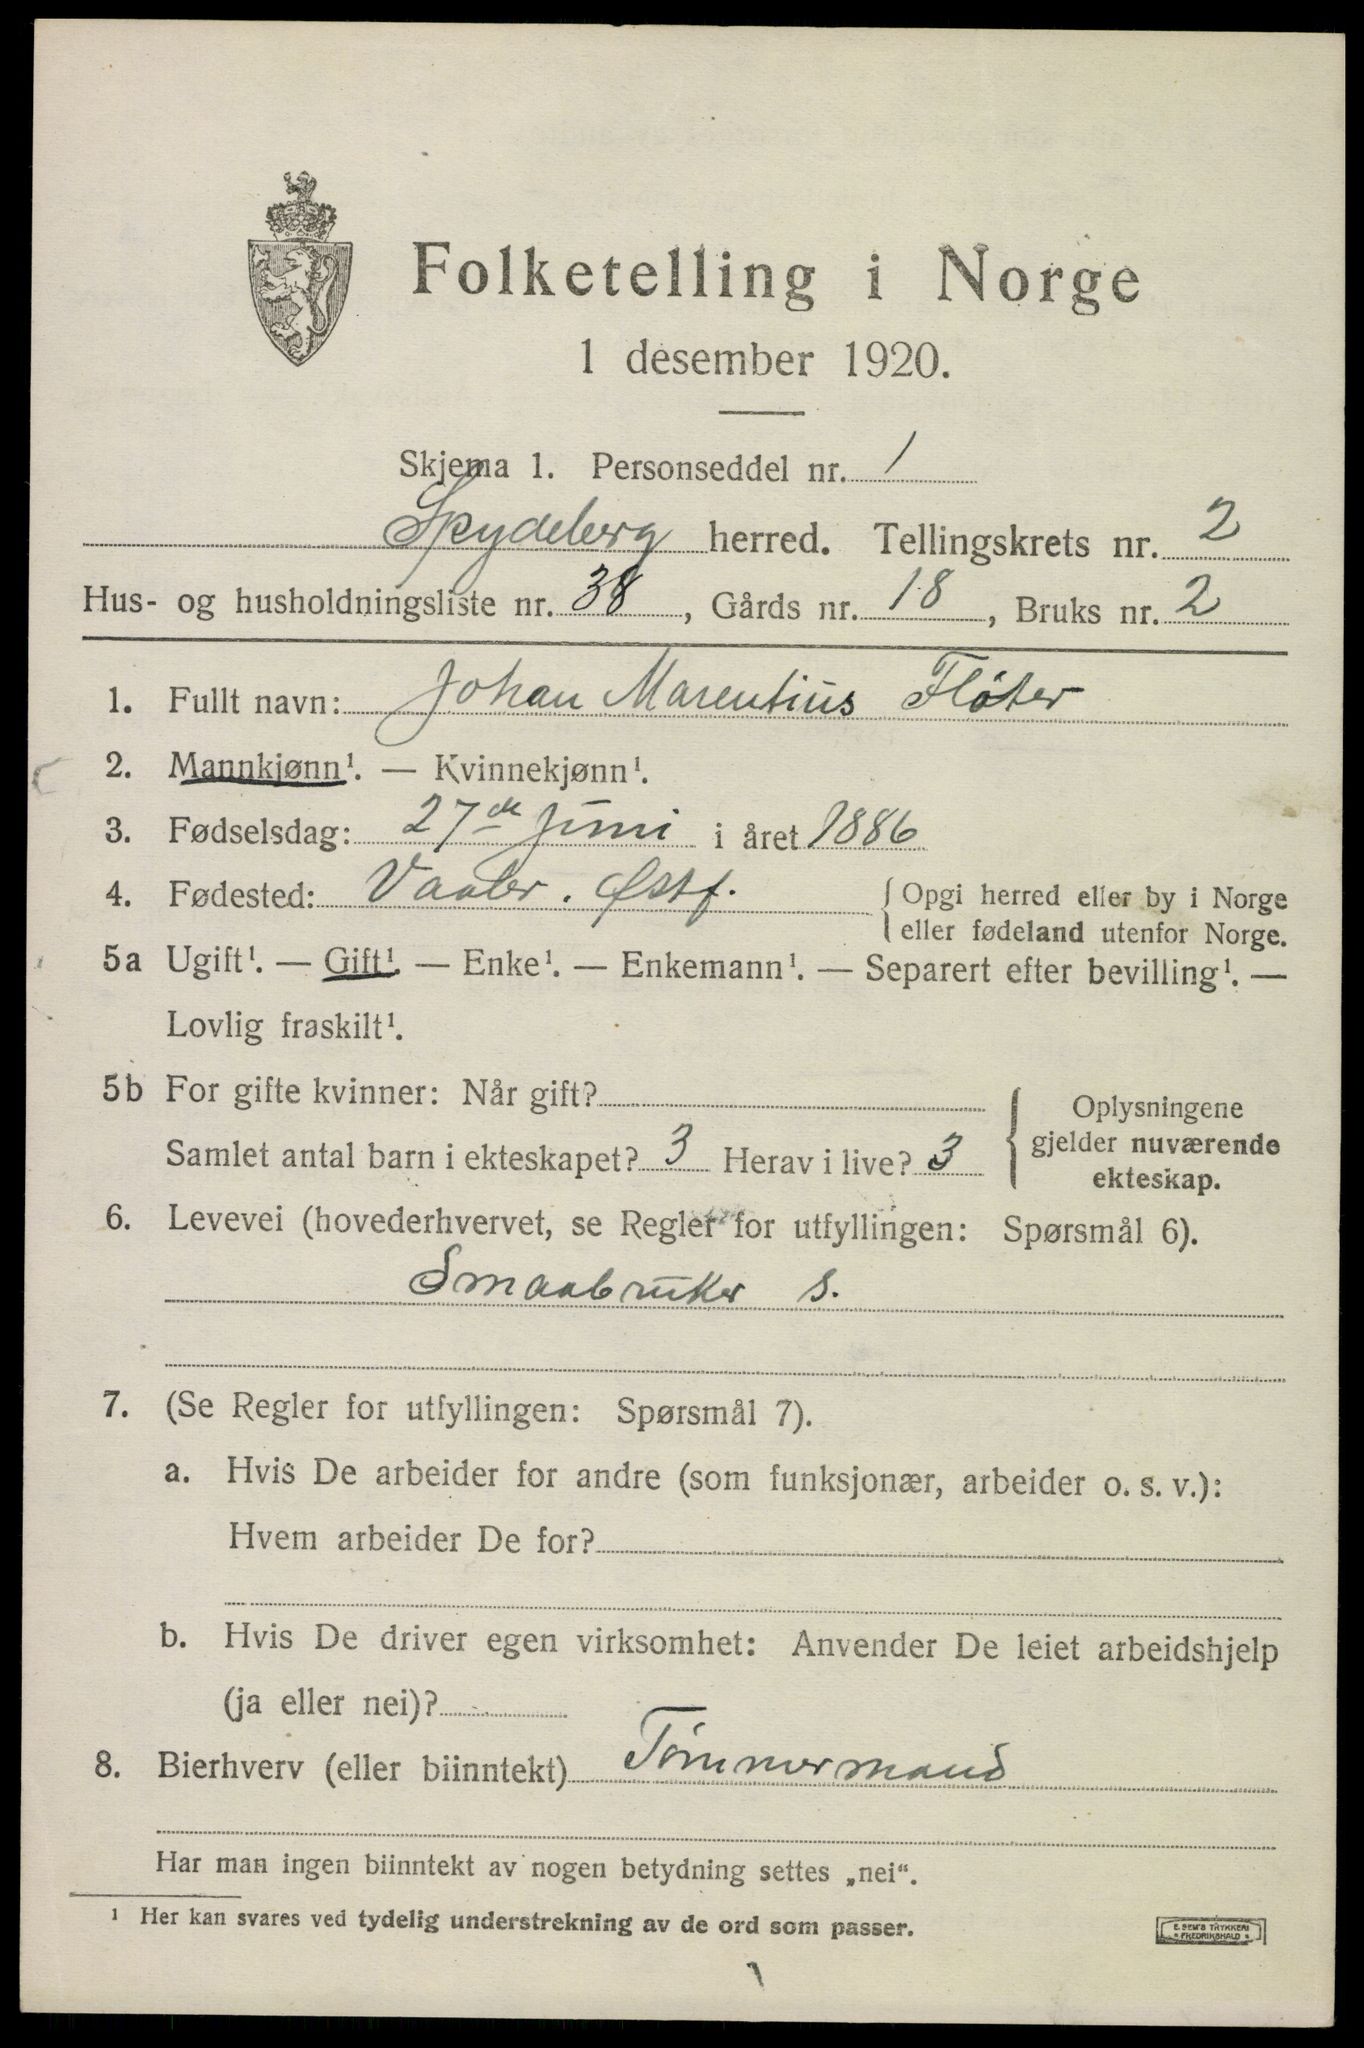 Folketelling i Norge
1 desember 1920.
Skjema 1. Personseddel nr. 1
Spydeberg herred. Tellingskrets nr. 2
Hus- og husholdningsliste nr. 38, Gårds nr. 18, Bruks nr. 2
1. Fullt navn: Johan Marentius Fløter
2. Mannkjønn¹. — Kvinnekjønn¹.
3. Fødselsdag: 27de Juni i året 1886
4. Fødested: Vaaler. Østf. { Opgi herred eller by i Norge
eller fødeland utenfor Norge.
5a Ugift¹. — Gift¹. — Enke¹. — Enkemann¹. — Separert efter bevilling¹. —
Lovlig fraskilt¹.
5b For gifte kvinner: Når gift?
Samlet antal barn i ekteskapet? 3 Herav i live? 3
Oplysningene
gjelder nuværende
ekteskap.
6. Levevei (hovederhvervet, se Regler for utfyllingen: Spørsmål 6).
Smaabruker s.
7. (Se Regler for utfyllingen: Spørsmål 7).
a. Hvis De arbeider for andre (som funksjonær, arbeider o. s. v.):
Hvem arbeider De for?
b. Hvis De driver egen virksomhet: Anvender De leiet arbeidshjelp
(ja eller nei)?
8. Bierhverv (eller biinntekt) Tømmermand
Har man ingen biinntekt av nogen betydning settes „nei“.
¹ Her kan svares ved tydelig understrekning av de ord som passer.
E. SEM'S TRYKKERI
FREDRIKSHALD